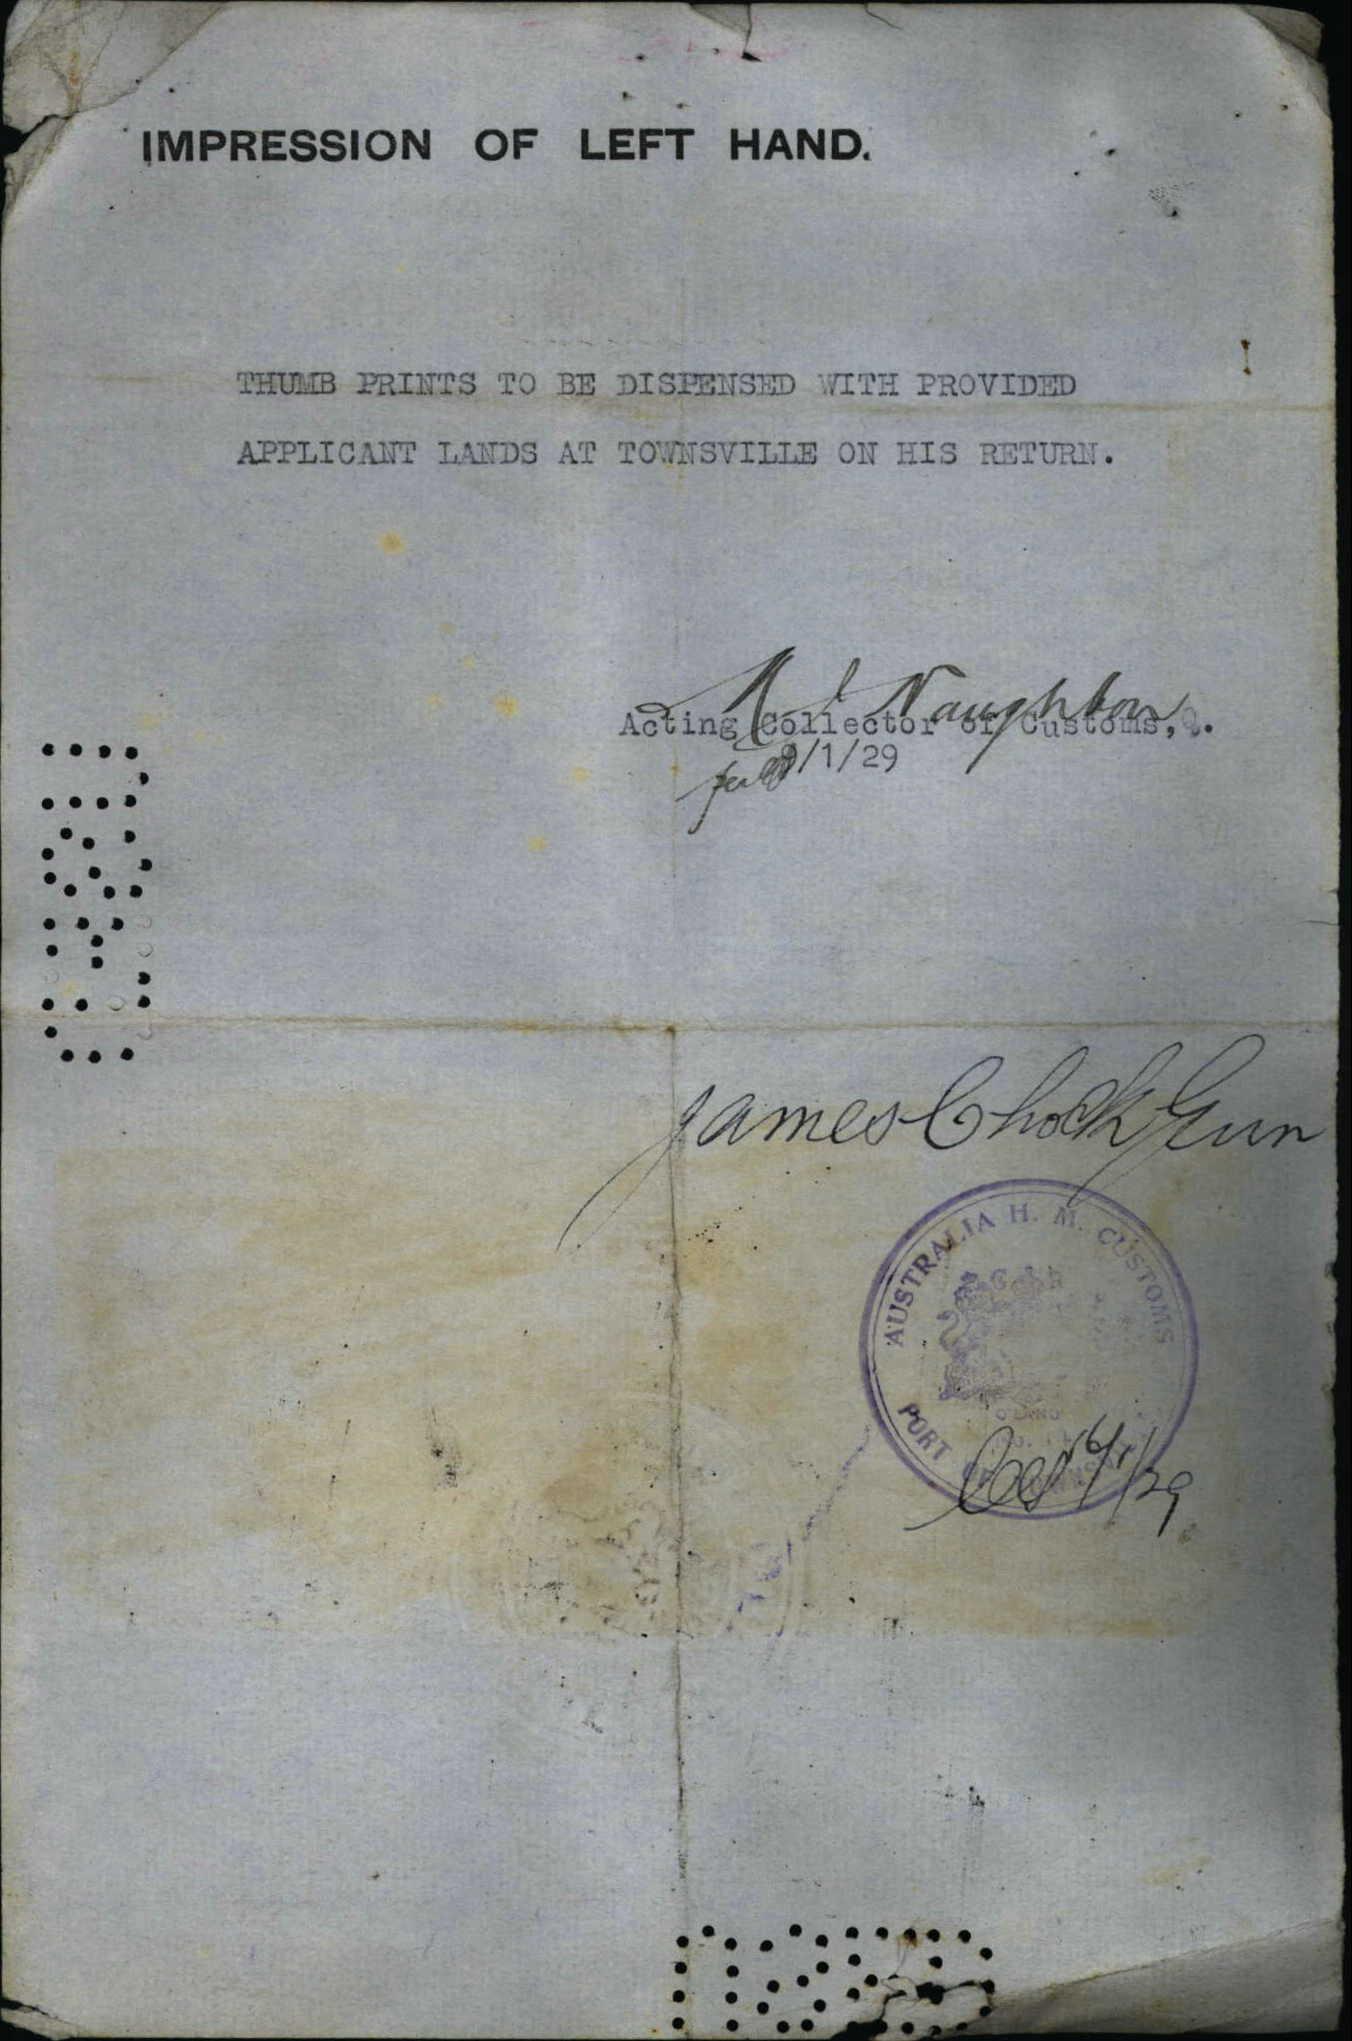 IMPRESSION OF LEFT HAND.
THUMB PRINTS TO BE DISPENSED WITH PROVIDED
APPLICANT LANDS AT TOWNSVILLE ON HIS RETURN.
Naughton
Acting Collector of Customs, Q.
9/1/29
James Chock Gun
AUSTRALIA H. M. CUSTOMS
PORT